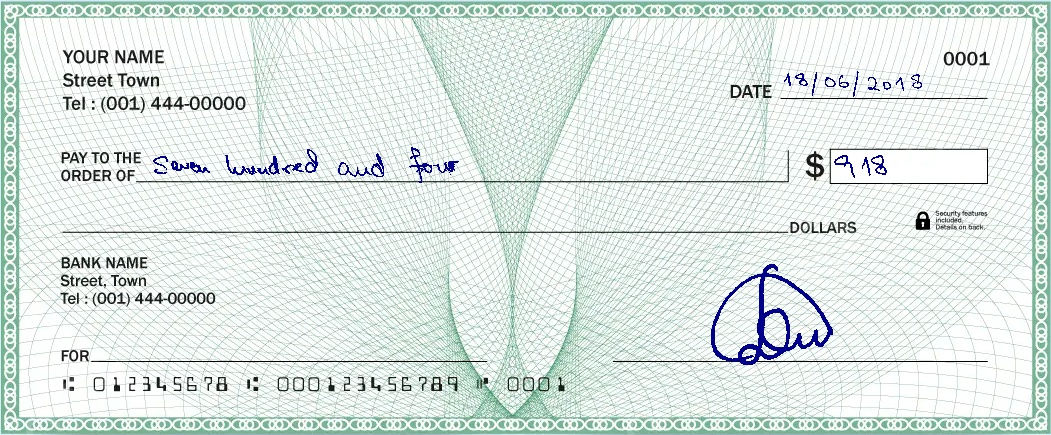 YOUR NAME
0001
Street Town
DATE 18/06/2018
Tel : (001) 444-00000
PAY TO THE
ORDER OF Seven hundred and four $ 918
DOLLARS
Security features
included.
Details on back.
BANK NAME
Street, Town
Tel : (001) 444-00000
FOR
⑆ 012345678 ⑆ 000123456789 ⑈ 0001